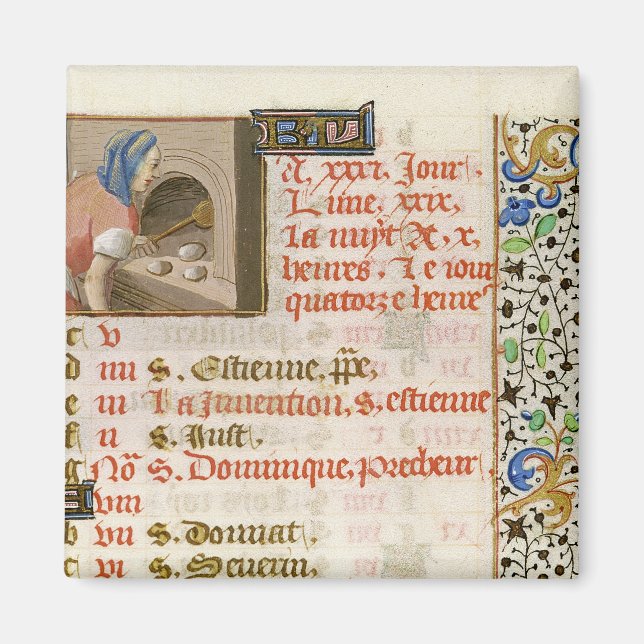 KL
A, xxxi, Jour,
Lune, xxix,
La nuyt A, x,
heures, Le iour
quatorze heure
c v
d iiii S. Estienne, ppe,
e iii La Invention, s, estienne
f ii S. Just,
g No S. Dominique, precheur
viii
b vii S. Donnat,
c vi S. Severin,